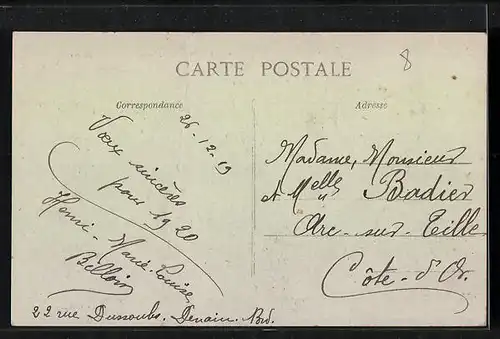 8
CARTE POSTALE
Correspondance
Adresse
26-12-19
Vœux sincères
pour 1920
Henri - Marie-Louise
22 rue Dussoubs. Denain.
Madame, Monsieur
et Melle Badier
Arc-sur-Tille
Côte-d'Or.